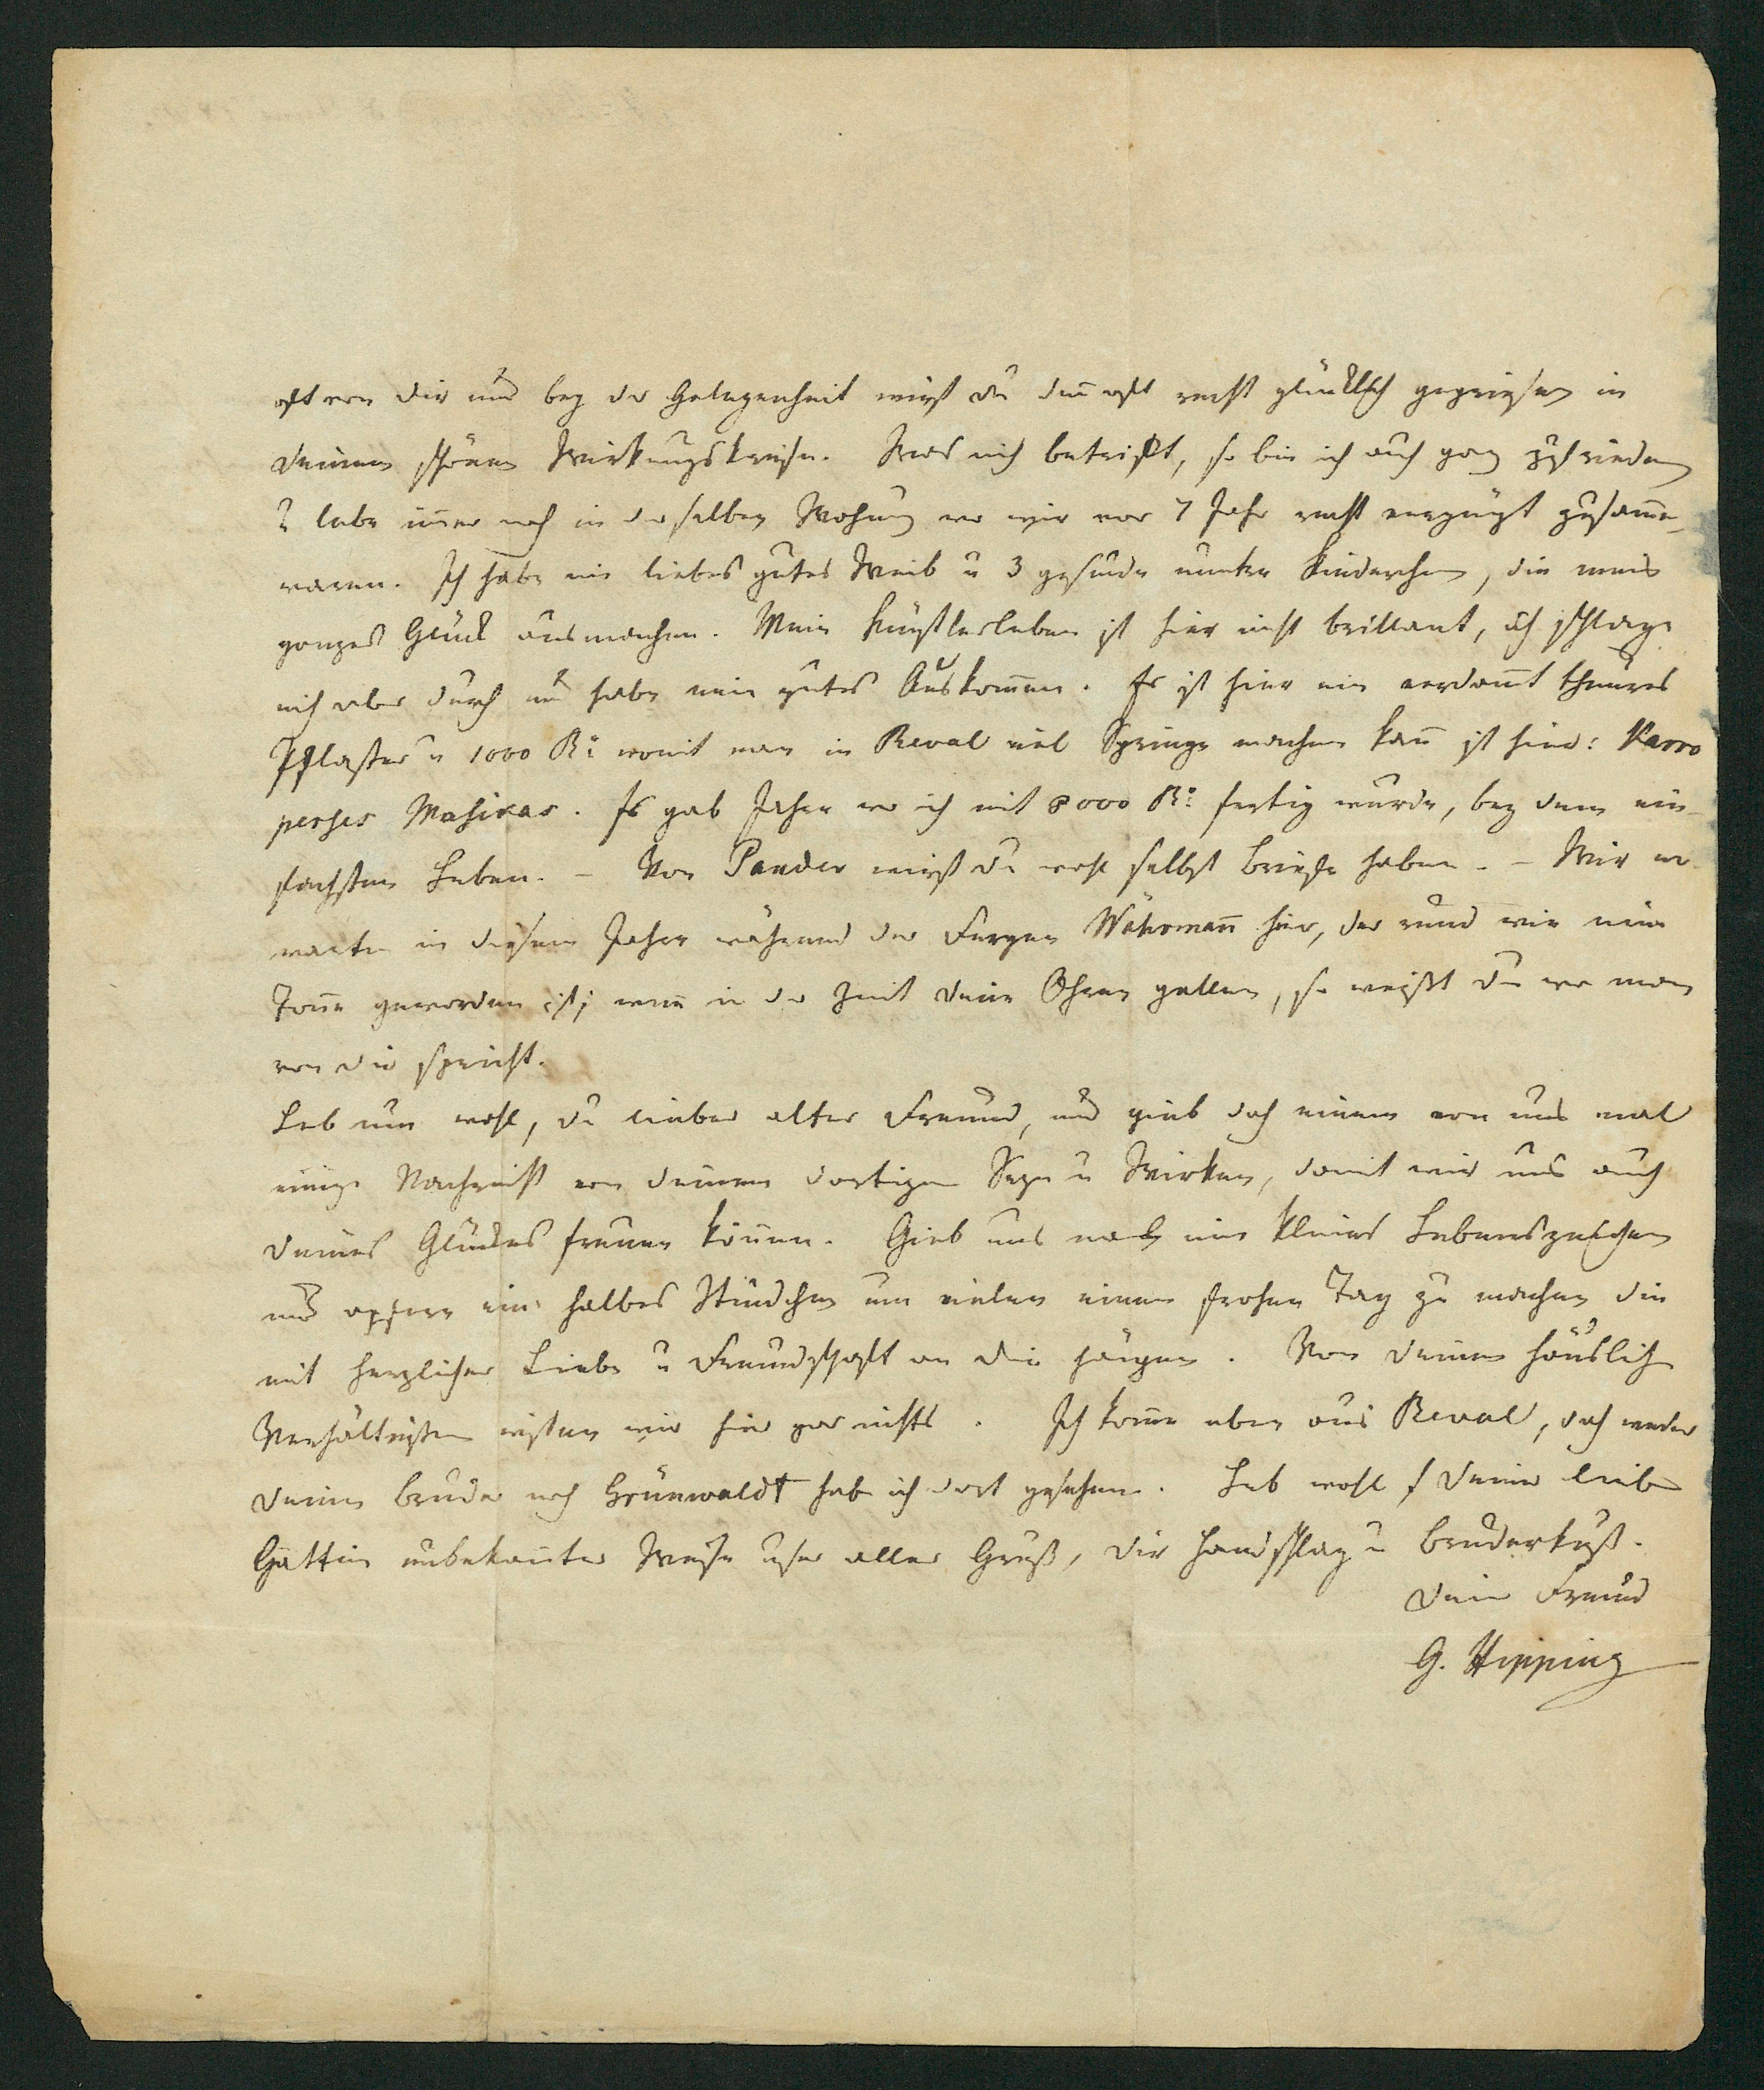 oft von dir und bey der Gelegenheit wirst du dañ oft recht glücklich gepriesen in
deinem schönen Wirkungskreise. Was mich betrifft, so bin ich auch ganz zufrieden
u lebe im̃er noch in derselben Wohnung wo wir vor 7 Jahr recht vergnügt zusam̃en
waren. Ich habe ein liebes gutes Weib u 3 gesunde muntre Kinderchen, die mein
ganzes Glück ausmachen. Mein Künstlerleben ist hier nicht brillant, ich schlage
mich aber durch und habe mein gutes Auskom̃en. Es ist hier ein verdam̃t theures
Pflaster u 1000 R: womit man in Reval viel Sprünge machen kañ ist hier: Karro
perses Masikas. Es gab Jahre wo ich mit 8000 R: fertig wurde, bey dem ein-
fachsten Leben. – Von Pander wirst du wohl selbst Briefe haben. – Wir er-
warten in diesem Jahre während der Ferien Währmañ hier, der rund wie eine
Toñe geworden ist; weñ in der Zeit deine Ohren gellen, so weißt du wo man
von dir spricht.
Leb nun wohl, du lieber alter Freund, und gieb doch einem von uns mal
einige Nachricht von deinem dortigen Seyn u Wirken, damit wir uns auch
deines Glückes freuen köñen. Gieb uns mal ein kleines Lebenszeichen
und opfere ein halbes Stündchen um vielen einen frohen Tag zu machen die
mit herzlicher Liebe u Freundschaft an dir hängen. Von deinen häuslichen
Verhältnißen wissen wir hier gar nichts. Ich kom̃e eben aus Reval, doch weder
deinen Bruder noch Grünwaldt hab ich dort gesehen. Leb wohl, deiner lieben
Gattin unbekañter Weise unser aller Gruß, dir Handschlag u Bruderkuß.
Dein Freund
G. Hippius